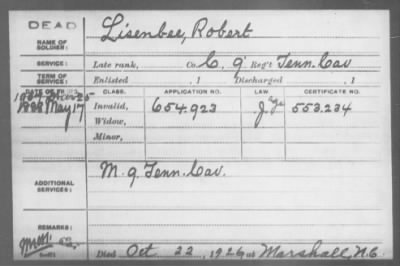 DEAD
NAME OF SOLDIER: Lisenbee, Robert
SERVICE: Late rank, Co. C, 9 Reg't Tenn. Cav
TERM OF SERVICE: Enlisted , 1 Discharged , 1
DATE OF FILING. CLASS. APPLICATION NO. LAW. CERTIFICATE NO.
1888 May 17 Invalid, 654.923 553.234
Widow,
Minor,
ADDITIONAL SERVICES: M. 9 Tenn. Cav.
REMARKS:
Died Oct 22, 1926 at Marshall, N.C.